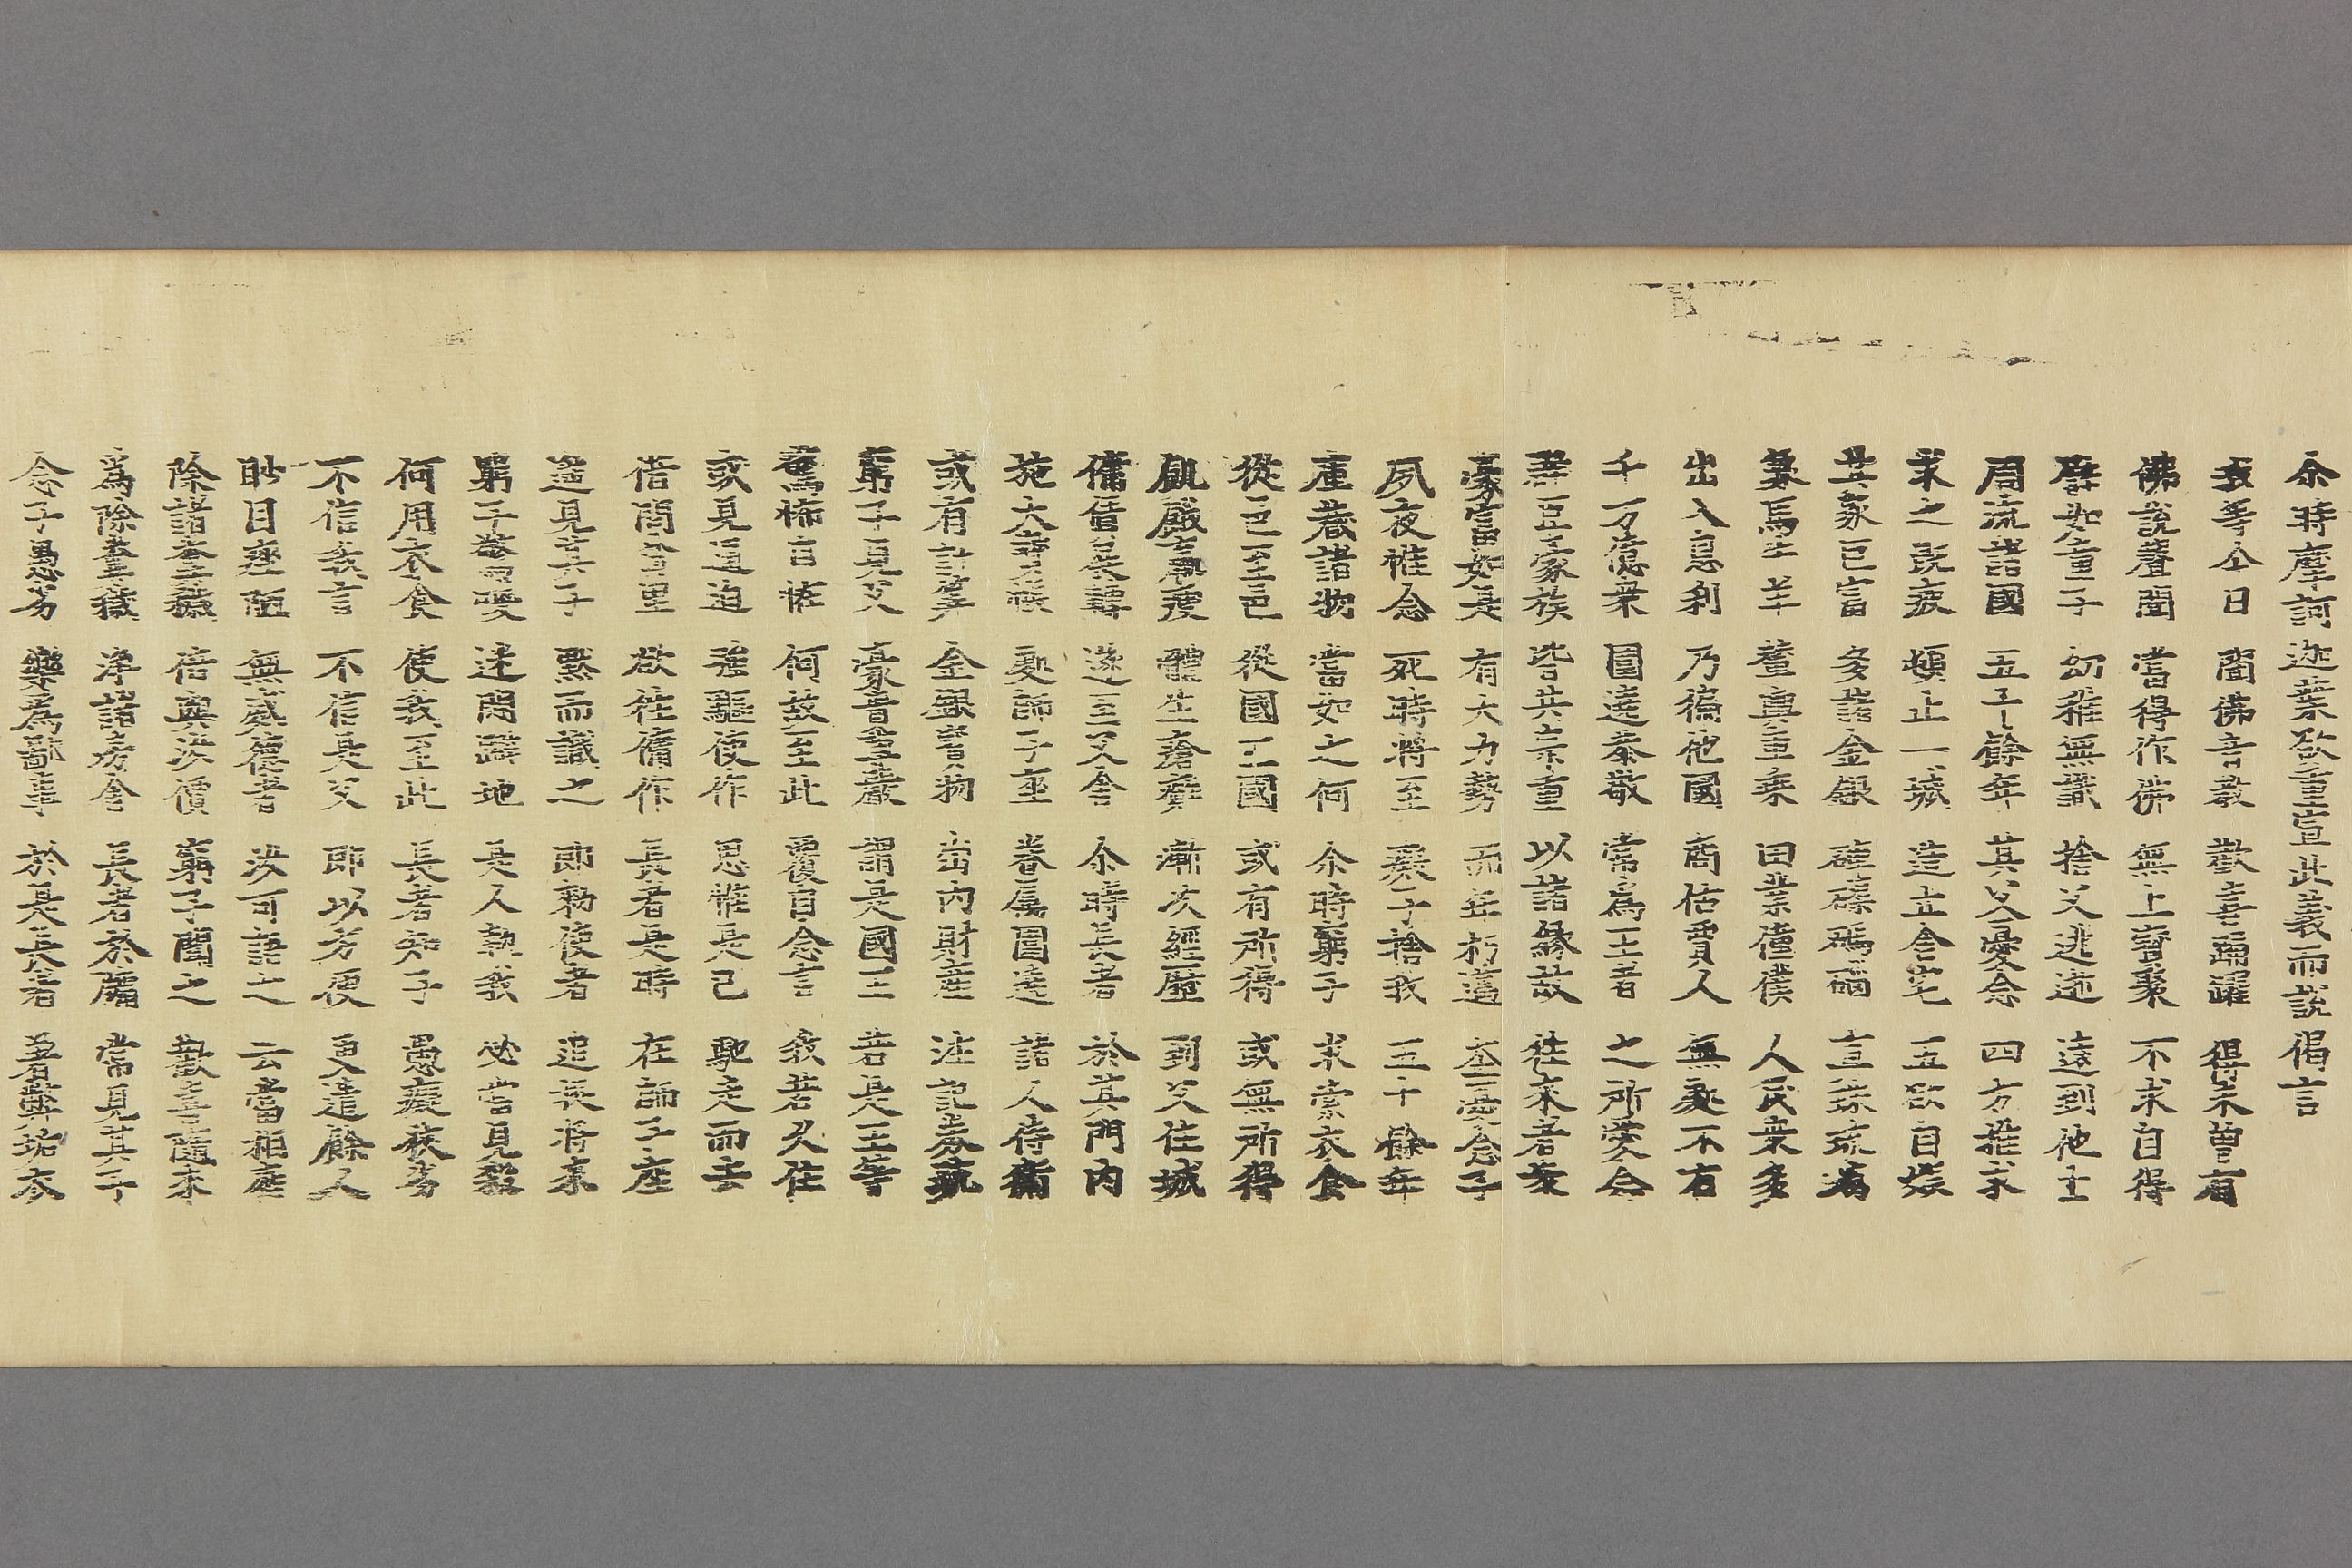 尒時摩訶迦葉欲重宣此義而說偈言
我等今日 聞佛音教 歡喜踊躍 得未曾有
佛說聲聞 當得作佛 無上寶聚 不求自得
譬如童子 幼稚無識 捨父逃逝 遠到他土
周流諸國 五十餘年 其父憂念 四方推求
求之既疲 頓止一城 造立舍宅 五欲自娛
其家巨富 多諸金銀 硨磲碼碯 真珠琉璃
象馬牛羊 輦輿車乘 田業僮僕 人民衆多
出入息利 乃徧他國 商估賈人 無處不有
千万億衆 圍遶恭敬 常爲王者 之所愛念
羣臣豪族 皆共宗重 以諸緣故 往來者衆
豪富如是 有大力勢 而年朽邁 益憂念子
夙夜惟念 死時將至 癡子捨我 五十餘年
庫藏諸物 當如之何 尒時窮子 求索衣食
從邑至邑 從國至國 或有所得 或無所得
飢餓羸瘦 體生瘡癬 漸次經歷 到父住城
傭賃展轉 遂至父舍 尒時長者 於其門內
施大寶帳 處師子座 眷屬圍遶 諸人侍衛
或有計筭 金銀寶物 出內財產 注記券疏
窮子見父 豪貴尊嚴 謂是國王 若是王等
驚怖自怪 何故至此 覆自念言 我若久住
或見逼迫 強驅使作 思惟是已 馳走而去
借問貧里 欲往傭作 長者是時 在師子座
遥見其子 默而識之 即勑使者 追捉將來
窮子驚喚 迷悶躃地 是人執我 必當見殺
何用衣食 使我至此 長者知子 愚癡狹劣
不信我言 不信是父 即以方便 更遣餘人
眇目矬陋 無威德者 汝可語之 云當相雇
除諸糞穢 倍與汝價 窮子聞之 歡喜隨來
爲除糞穢 淨諸房舍 長者於牖 常見其子
念子愚劣 樂爲鄙事 於是長者 著弊垢衣